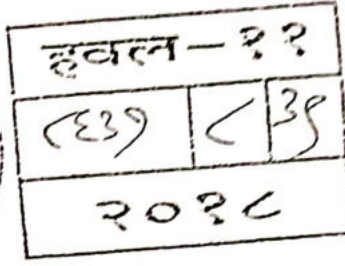 हवल - ११
८६३१ ८ ३९
२०१८